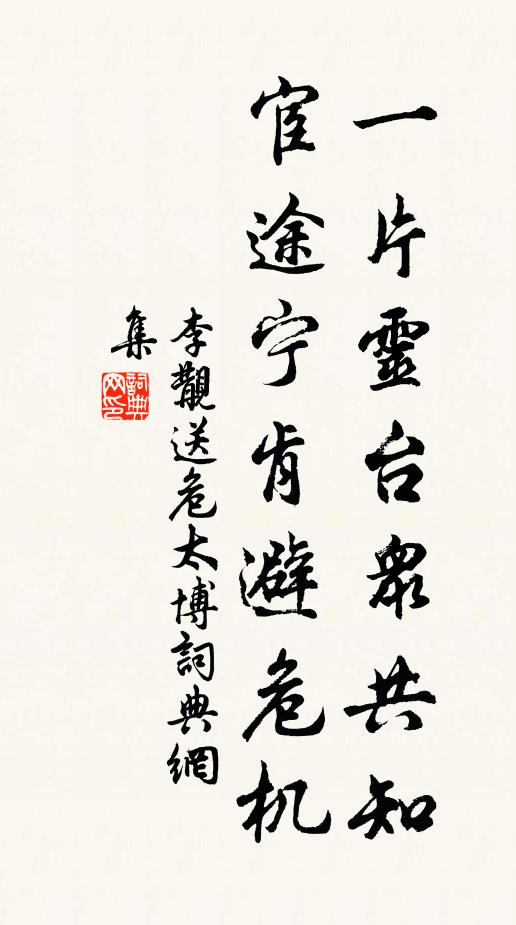 一片靈台眾共知
宦途宁肯避危机
李覯送危太博詞典網
集
詞典
网印